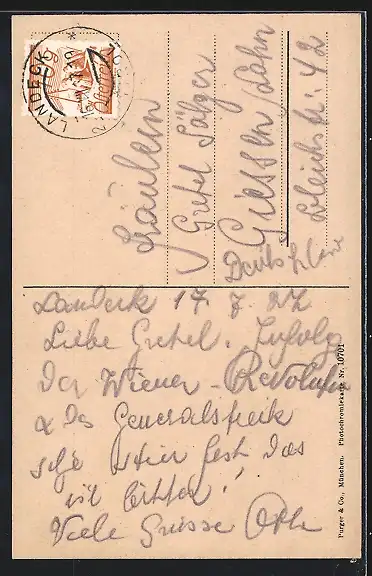 LANDECK
Fräulein
Gretel Sälzer
Giessen / Lahn
Bleichstr. 42
Deutschland
Landeck 17. 7. 27
Liebe Gretel. Infolge
der Wiener - Revolution
& des Generalstreik
sitze hier fest das
ist bitter!
Viele Grüsse Otto
Purger & Co., München. Photochromiekarte Nr. 10701